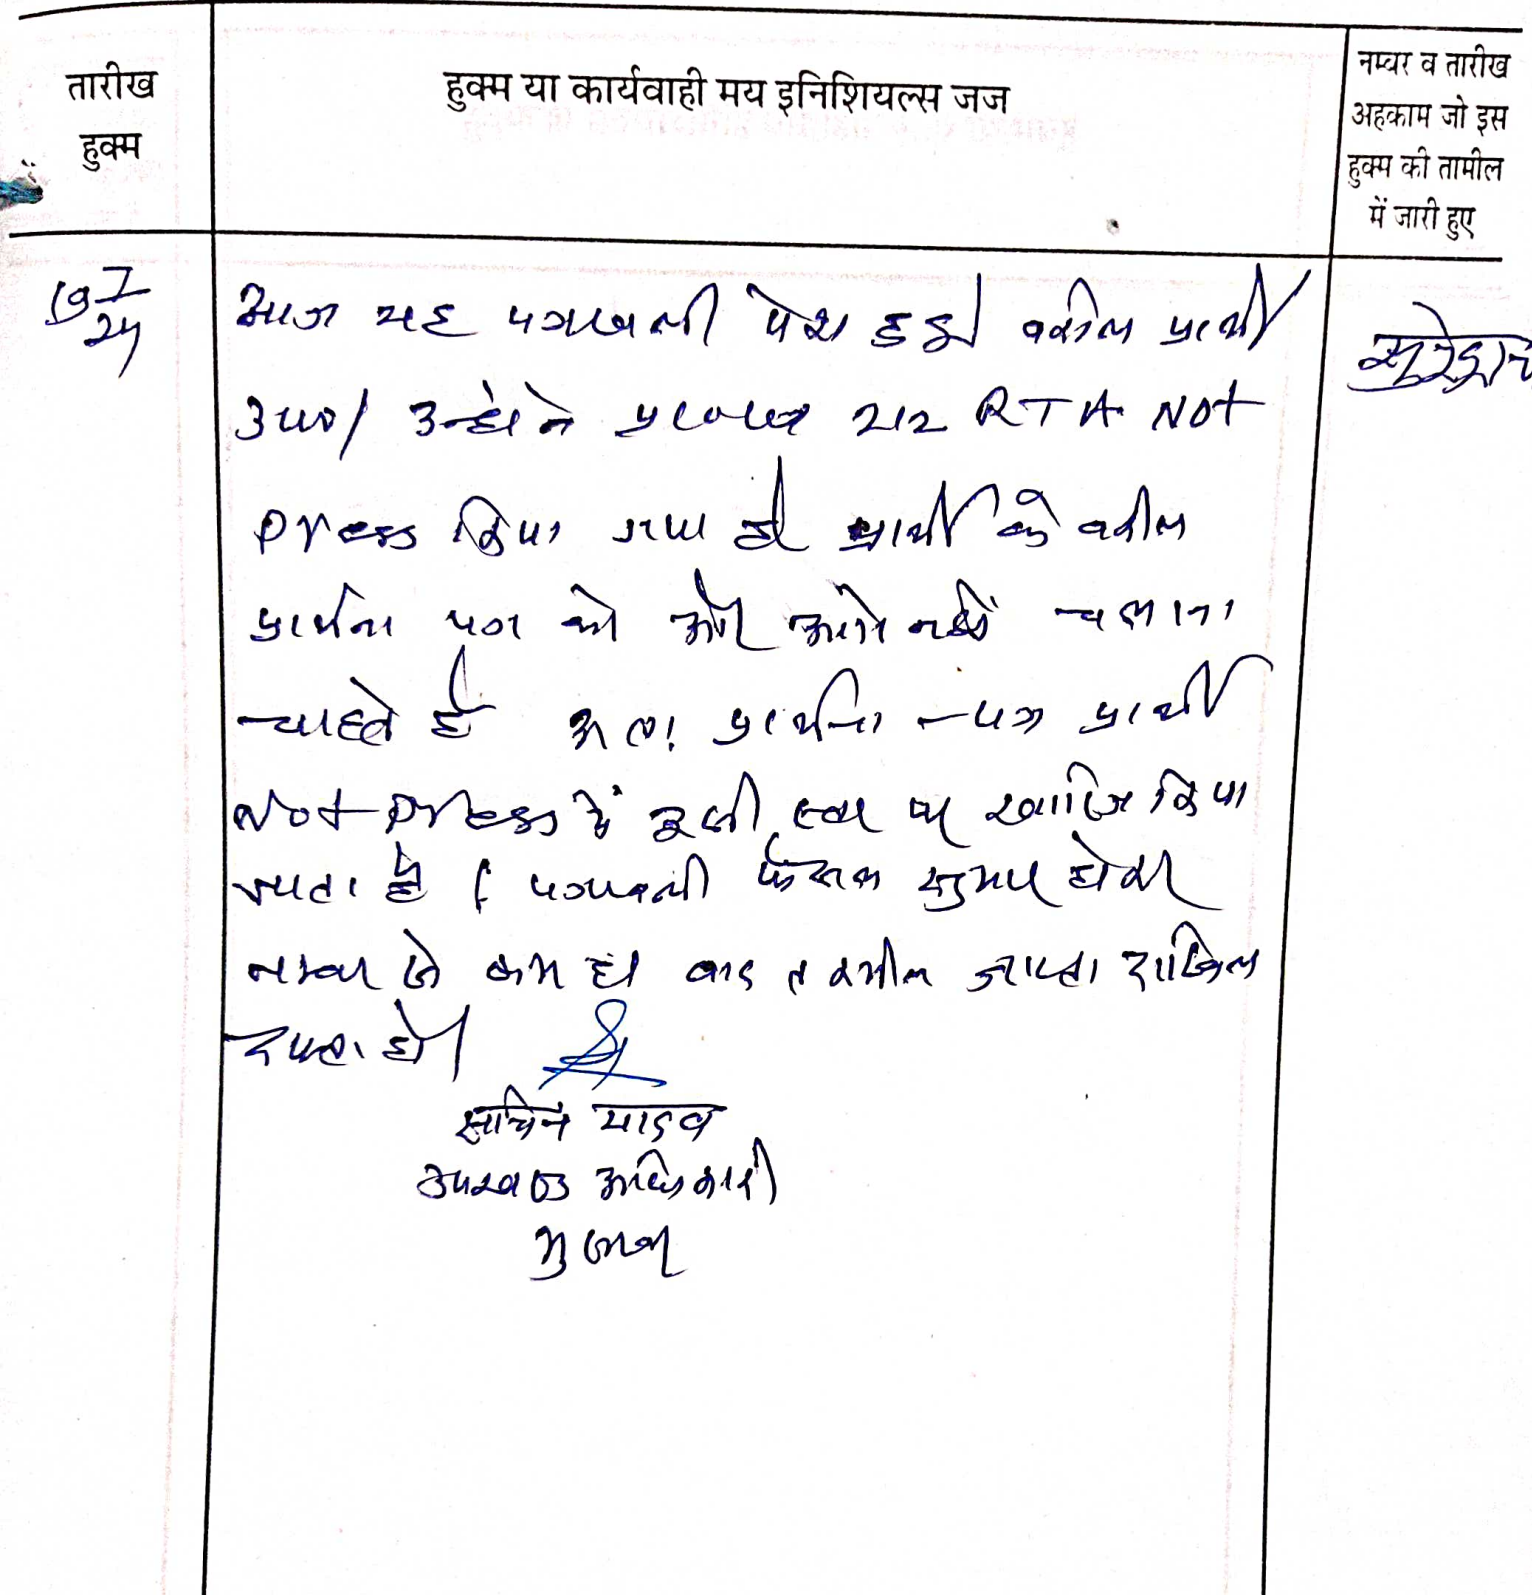 तारीख
हुक्म
हुक्म या कार्यवाही मय इनिशियल्स जज
नम्बर व तारीख
अहकाम जो इस
हुक्म की तामील
में जारी हुए
19/7/24
आज यह पत्रावली पेश हुई। वकील प्रार्थी
उप०। उन्होंने 212 RTA Not
press किया गया है। प्रार्थी के वकील
प्रार्थना पत्र को और आगे नहीं चलाना
चाहते है अतः प्रार्थना-पत्र प्रार्थी
Not press में इसी स्तर पर खारिज किया
जाता है। पत्रावली फैसल शुमार होकर
नम्बर से कम हो बाद तकमील जाप्ता दाखिल
दफ्तर हो।
सचिन यादव
उपखण्ड अधिकारी